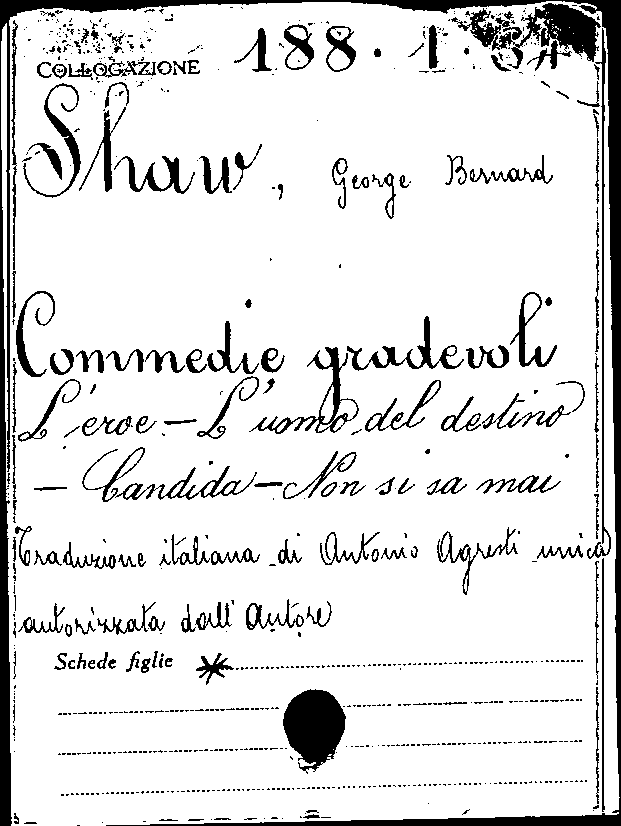 COLLOCAZIONE 188 · 1 · 34
Shaw, George Bernard
Commedie gradevoli
L'eroe - L'uomo del destino
- Candida - Non si sa mai
Traduzione italiana di Antonio Agresti unica
autorizzata dall'Autore
Schede figlie *